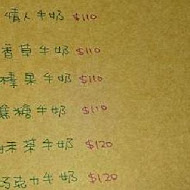 情人牛奶 $110
香草牛奶 $110
榛果牛奶 $110
焦糖牛奶 $110
抹茶牛奶 $120
巧克力牛奶 $120